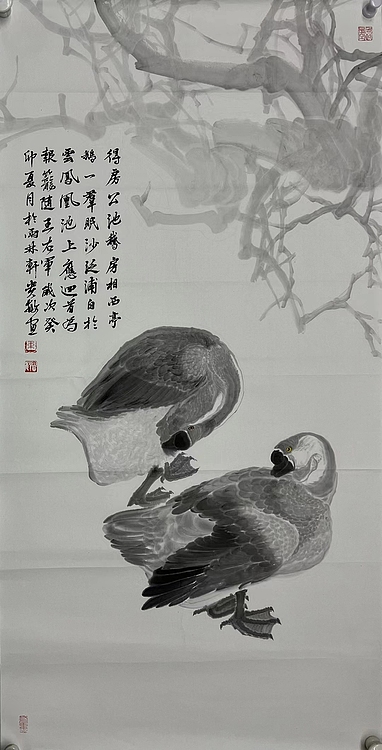 得房公池鵞房相西亭
鵝一羣眠沙泛浦白於
雲鳳凰池上應迴首為
報籠隨王右軍歲次癸
卯夏月於雨林軒貴敏畫